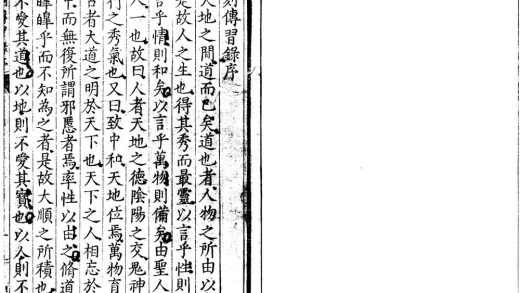 刻傳習錄序
天地之間道而已矣道也者人物之所由以
是故人之生也得其秀而最靈以言乎性則
言乎情則和矣以言乎萬物則備矣由聖人
人一也故曰人者天地之德陰陽之交鬼神
行之秀氣也又曰致中和天地位焉萬物育
古者大道之明於天下也天下之人相忘於
中而無復所謂邪慝者焉率性以由之脩道
暭暭乎而不知為之者是故大順之所積也
不愛其道也以地則不愛其寶也以人則不